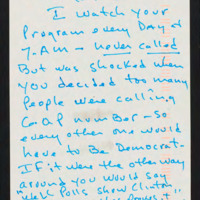 I watch your
Program every Day at
7-AM - never called
But was shocked when
you decided too many
People were calling
GOP number - so
every other one would
have to Be Democrat.
IF it were the other way
around you would say
"Well Polls show Clinton